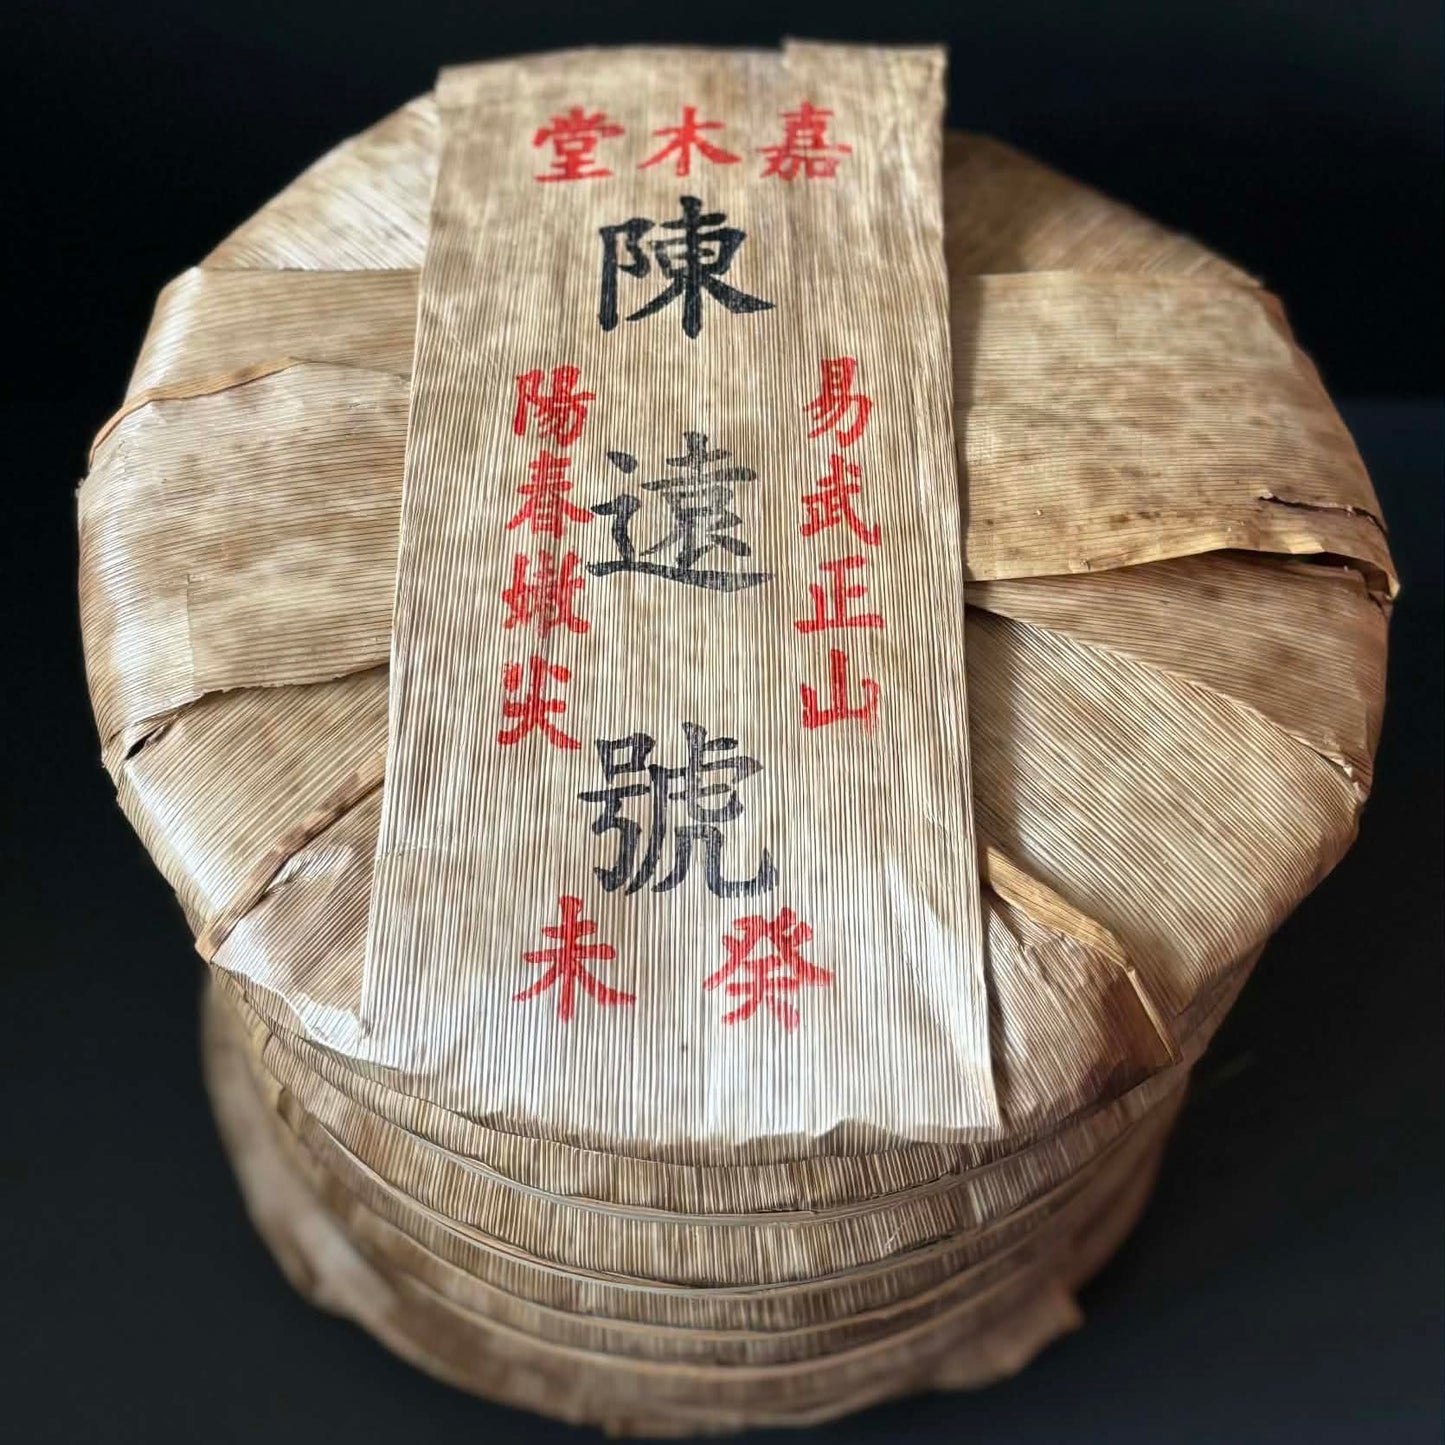 嘉木堂
陳遠號
易武正山
陽春嫩尖
癸未